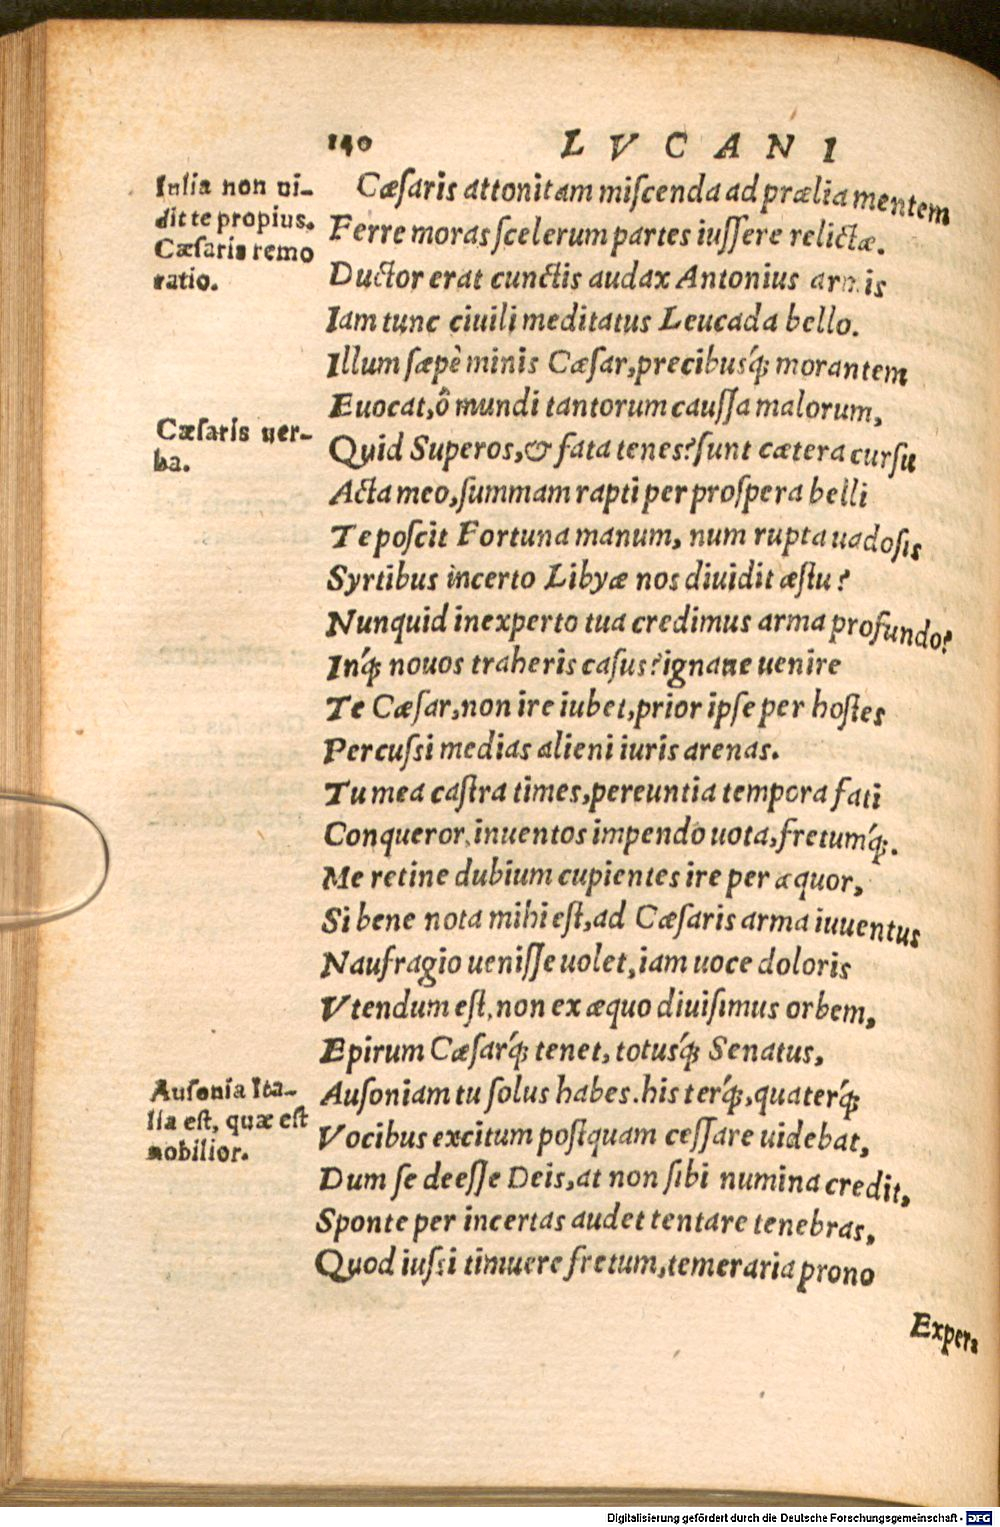 140 LVCANI
Iulia non ui-
dit te propius.
Cæsaris remo
ratio.
Cæsaris attonitam miscenda ad prælia mentem
Ferre moras scelerum partes iussere relictæ.
Ductor erat cunctis audax Antonius armis
Iam tunc ciuili meditatus Leucada bello.
Illum sæpè minis Cæsar, precibusq́; morantem
Euocat, ô mundi tantorum caussa malorum,
Cæsaris uer-
ba.
Quid Superos, & fata tenes? sunt cætera cursu
Acta meo, summam rapti per prospera belli
Te poscit Fortuna manum, num rupta uadosis
Syrtibus incerto Libyæ nos diuidit æstu?
Nunquid inexperto tua credimus arma profundo?
Inq́; nouos traheris casus? ignaue uenire
Te Cæsar, non ire iubet, prior ipse per hostes
Percussi medias alieni iuris arenas.
Tu mea castra times, pereuntia tempora fati
Conqueror, inuentos impendo uota, fretumq́;.
Me retine dubium cupientes ire per æquor,
Si bene nota mihi est, ad Cæsaris arma iuuentus
Naufragio uenisse uolet, iam uoce doloris
Vtendum est, non ex æquo diuisimus orbem,
Epirum Cæsarq́; tenet, totusq́; Senatus,
Ausonia Ita-
lia est, quæ est
nobilior.
Ausoniam tu solus habes. his terq́;, quaterq́;
Vocibus excitum postquam cessare uidebat,
Dum se deesse Deis, at non sibi numina credit,
Sponte per incertas audet tentare tenebras,
Quod iussi timuere fretum, temeraria prono
Exper-
Digitalisierung gefördert durch die Deutsche Forschungsgemeinschaft - DFG